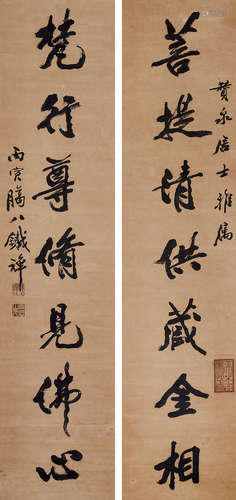 菩提清供藏金相
贊泉居士雅屬
梵行尊脩見佛心
丙寅臈八鐵禪